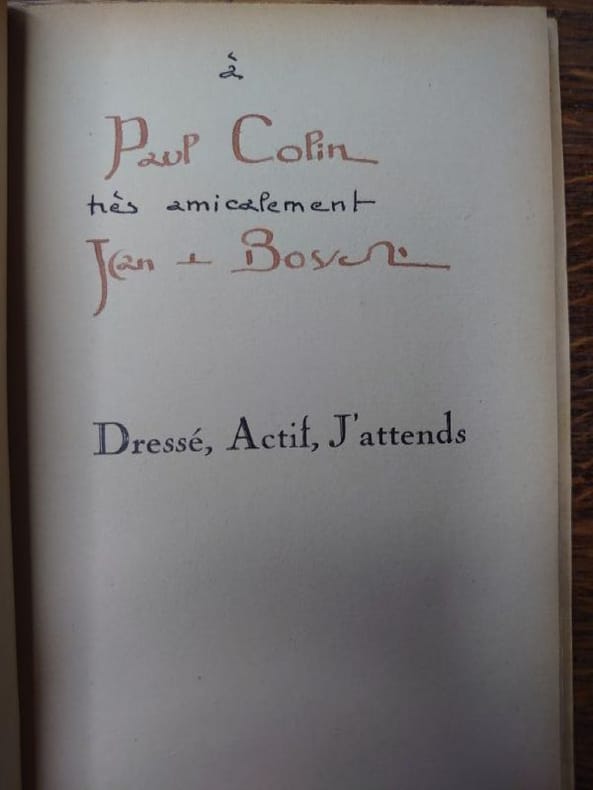 à
Paul Colin
très amicalement
Jean - Bosch
Dressé, Actif, J'attends